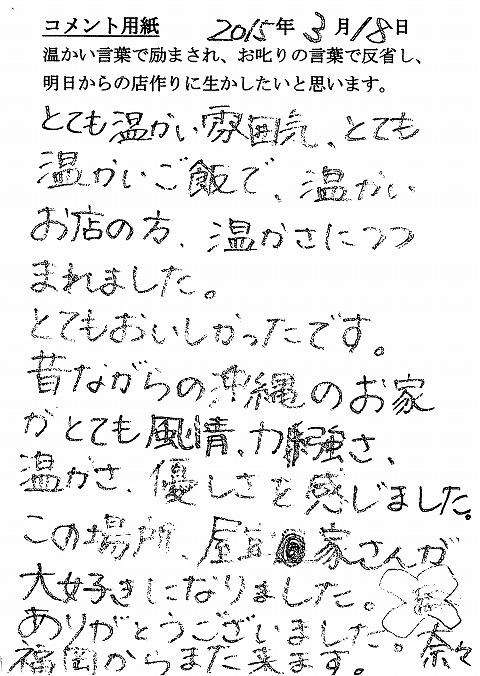 コメント用紙 2015年3月18日
温かい言葉で励まされ、お叱りの言葉で反省し、
明日からの店作りに生かしたいと思います。
とても温かい雰囲気、とても
温かいご飯で、温かい
お店の方、温かさにつつ
まれました。
とてもおいしかったです。
昔ながらの沖縄のお家
がとても風情、力強さ、
温かさ、優しさを感じました。
この場所、屋宜家さんが
大好きになりました。
ありがとうございました。
福岡からまた来ます。 奈々